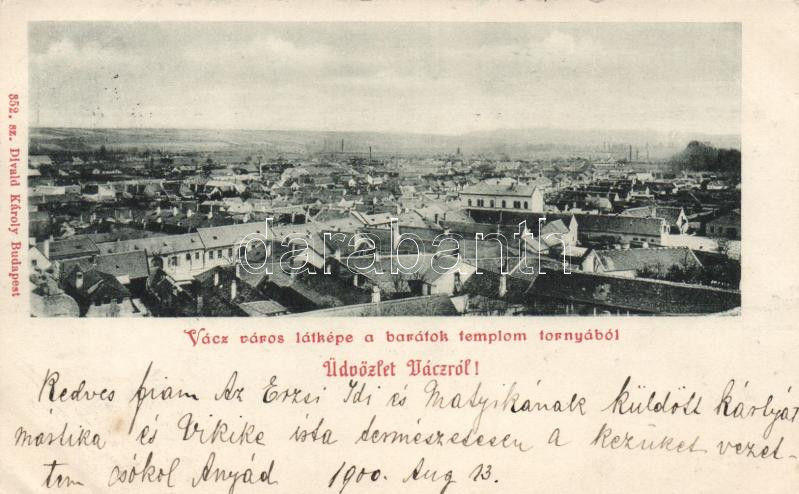 352. sz. Divald Károly Budapest
darabanth
Vácz város látképe a barátok templom tornyából
Üdvözlet Váczról!
Kedves fiam Az Erzsi Idi és Matyikának küldött kártyát
Mártika és Vikike irta természetesen a kezüket vezet-
tem csókol Anyád 1900. Aug 13.